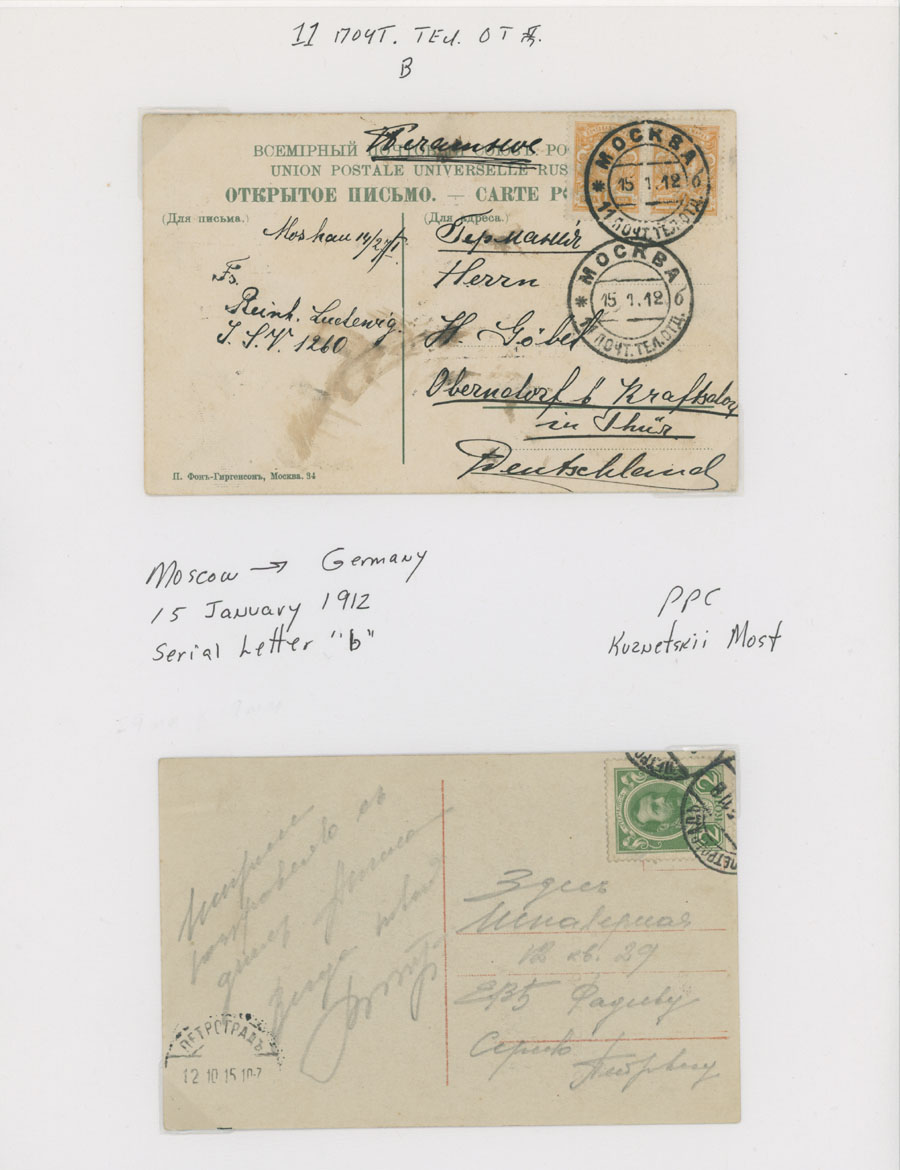 11 ПОЧТ. ТЕЛ. ОТД.
В
Печатное
ВСЕМІРНЫЙ ПОЧТОВЫЙ СОЮЗЪ. РО
UNION POSTALE UNIVERSELLE RUS
ОТКРЫТОЕ ПИСЬМО. — CARTE PO
МОСКВА
15 1.12 б
* 11 ПОЧТ.ТЕЛ.ОТД.
(Для письма.)
Moskau 14/27/I
Fs.
Reinh. Ludewig.
S. S. V. 1260
(Для адреса.)
Германія
Herrn
H. Göbel
Oberndorf b Kraftsdorf
in Thür.
Deutschland
МОСКВА
15 1.12 б
* 11 ПОЧТ.ТЕЛ.ОТД.
П. Фонъ-Гиргенсонъ, Москва. 34
Moscow → Germany
15 January 1912
Serial Letter "b"
PPC
Kuznetskii Most
ПЕТРО
ПЕТРОГРАДЪ
2 КОП
Здесь
Шпалерная
12 кв. 29
ЕВБ Фадѣеву
Сергѣю
Петровичу
ПЕТРОГРАДЪ
12 10 15 10-7